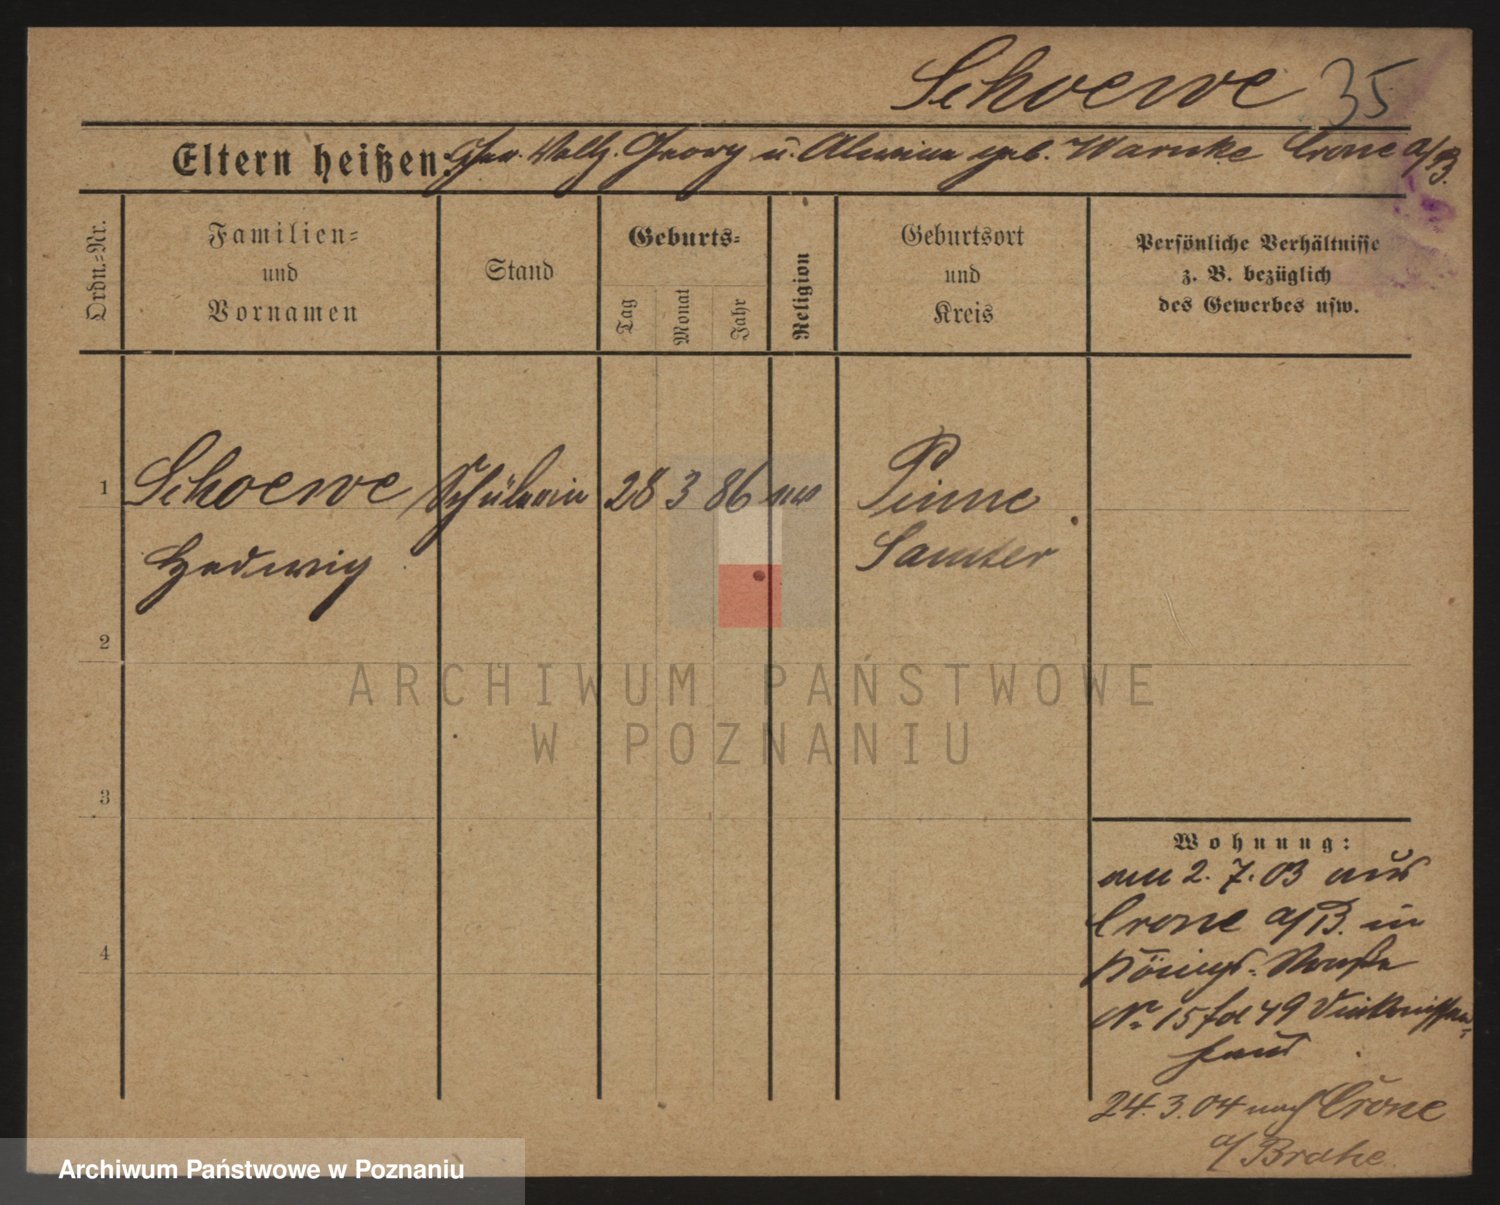 Schoewe 35
Eltern heißen: Ger. Vollz. Georg u. Alwine geb. Warnke Crone a/B.
Ordn.=Nr.
Familien=
und
Vornamen
Stand
Geburts=
Tag
Monat
Jahr
Religion
Geburtsort
und
Kreis
Persönliche Verhältnisse
z. B. bezüglich
des Gewerbes usw.
1 Schoewe Schülerin 28 3 86 Pinne
Hedwig Samter
2
3
4
Wohnung:
am 2. 7. 03 aus
Crone a/B. in
Königs-Straße
No 15 bei 49 Diakonissen-
haus
24. 3. 04 nach Crone
a/Brahe
ARCHIWUM PAŃSTWOWE
W POZNANIU
Archiwum Państwowe w Poznaniu